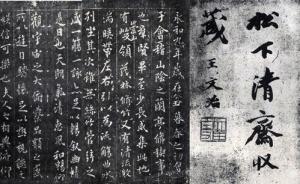 松下清齋收
藏 王文治
永和九年歲在癸丑暮春之初會
于會稽山陰之蘭亭脩稧事
也羣賢畢至少長咸集此地
有崇山峻領茂林脩竹又有清流激
湍暎帶左右引以為流觴曲水
列坐其次雖無絲竹管弦之
盛一觴一詠亦足以暢敘幽情
是日也天朗氣清惠風和暢仰
觀宇宙之大俯察品類之盛
所以遊目騁懷足以極視聽之
娛信可樂也夫人之相與俯仰